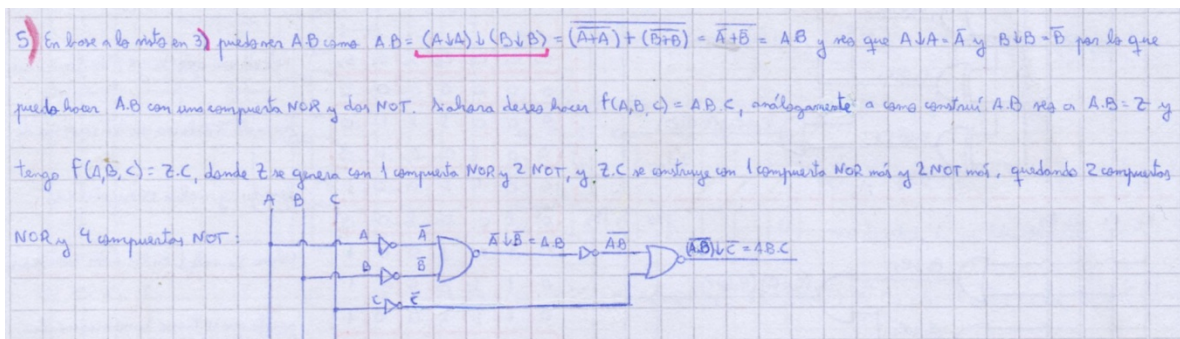 5) En base a lo visto en 3) puedo ver A.B como A.B = (A↓A)↓(B↓B) = \overline{(\overline{A+A}) + (\overline{B+B})} = \overline{\overline{A}+\overline{B}} = A.B y veo que A↓A = \overline{A} y B↓B = \overline{B} por lo que
puedo hacer A.B con una compuerta NOR y dos NOT. Si ahora deseo hacer f(A,B,C) = A.B.C, análogamente a como construí A.B veo a A.B = Z y
tengo f(A,B,C) = Z.C, donde Z se genera con 1 compuerta NOR y 2 NOT, y Z.C se construye con 1 compuerta NOR más y 2 NOT más, quedando 2 compuertas
NOR y 4 compuertas NOT:
A B C
A \overline{A} \overline{A}↓\overline{B} = A.B \overline{AB} (\overline{A.B})↓\overline{C} = A.B.C
B \overline{B}
C \overline{C}